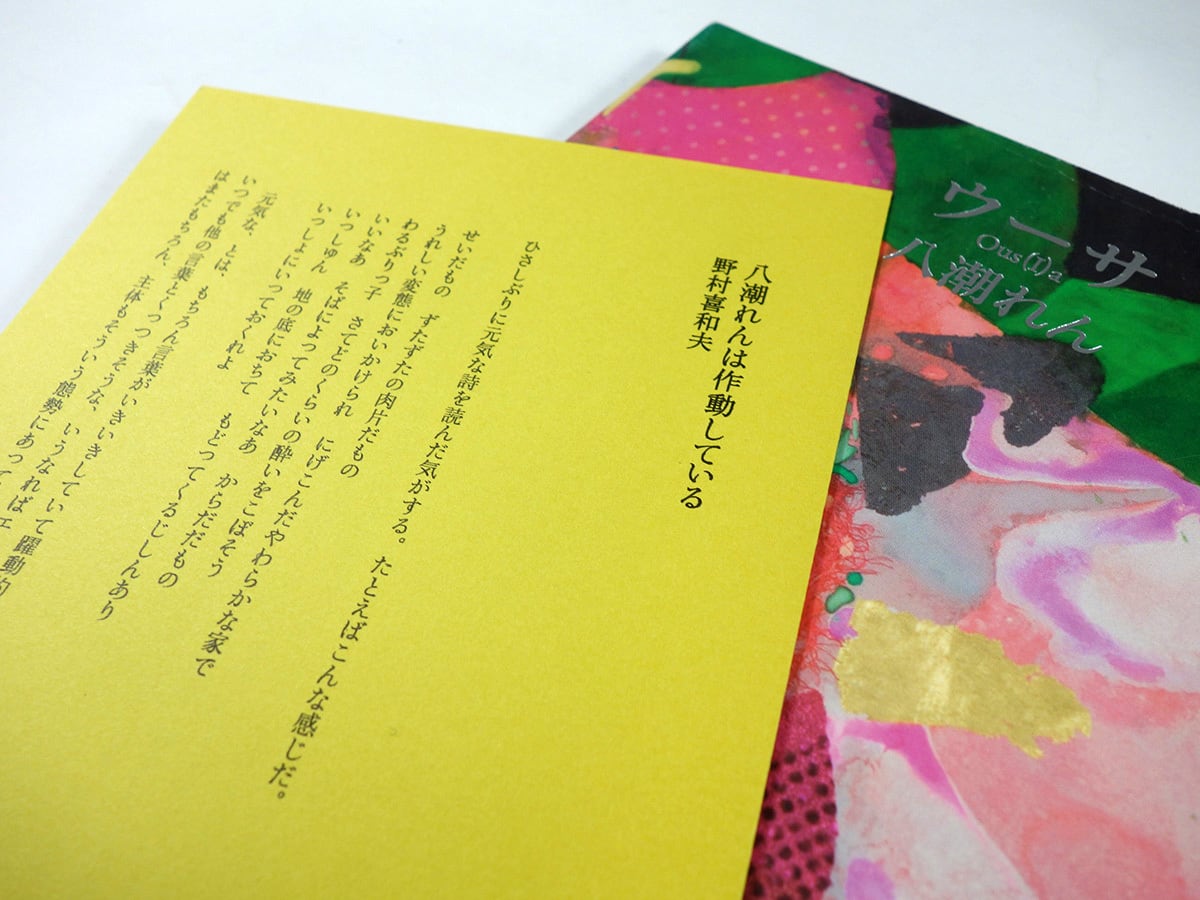 八潮れんは作動している
野村喜和夫
ひさしぶりに元気な詩を読んだ気がする。たとえばこんな感じだ。
せいだもの　ずたずたの肉片だもの
うれしい変態においかけられ　にげこんだやわらかな家で
わるぶりっ子　さてどのくらいの酔いをこぼそう
いいなあ　そばによってみたいなあ　からだだもの
いっしゅん　地の底におちて　もどってくるじしんあり
いっしょにいっておくれよ
元気な、とは、もちろん言葉がいきいきしていて躍動的
いつでも他の言葉とくっつきそうな、いうなればエ
はまたもちろん、主体もそういう態勢にあって
ウーサ
Ous(i)a
八潮れん